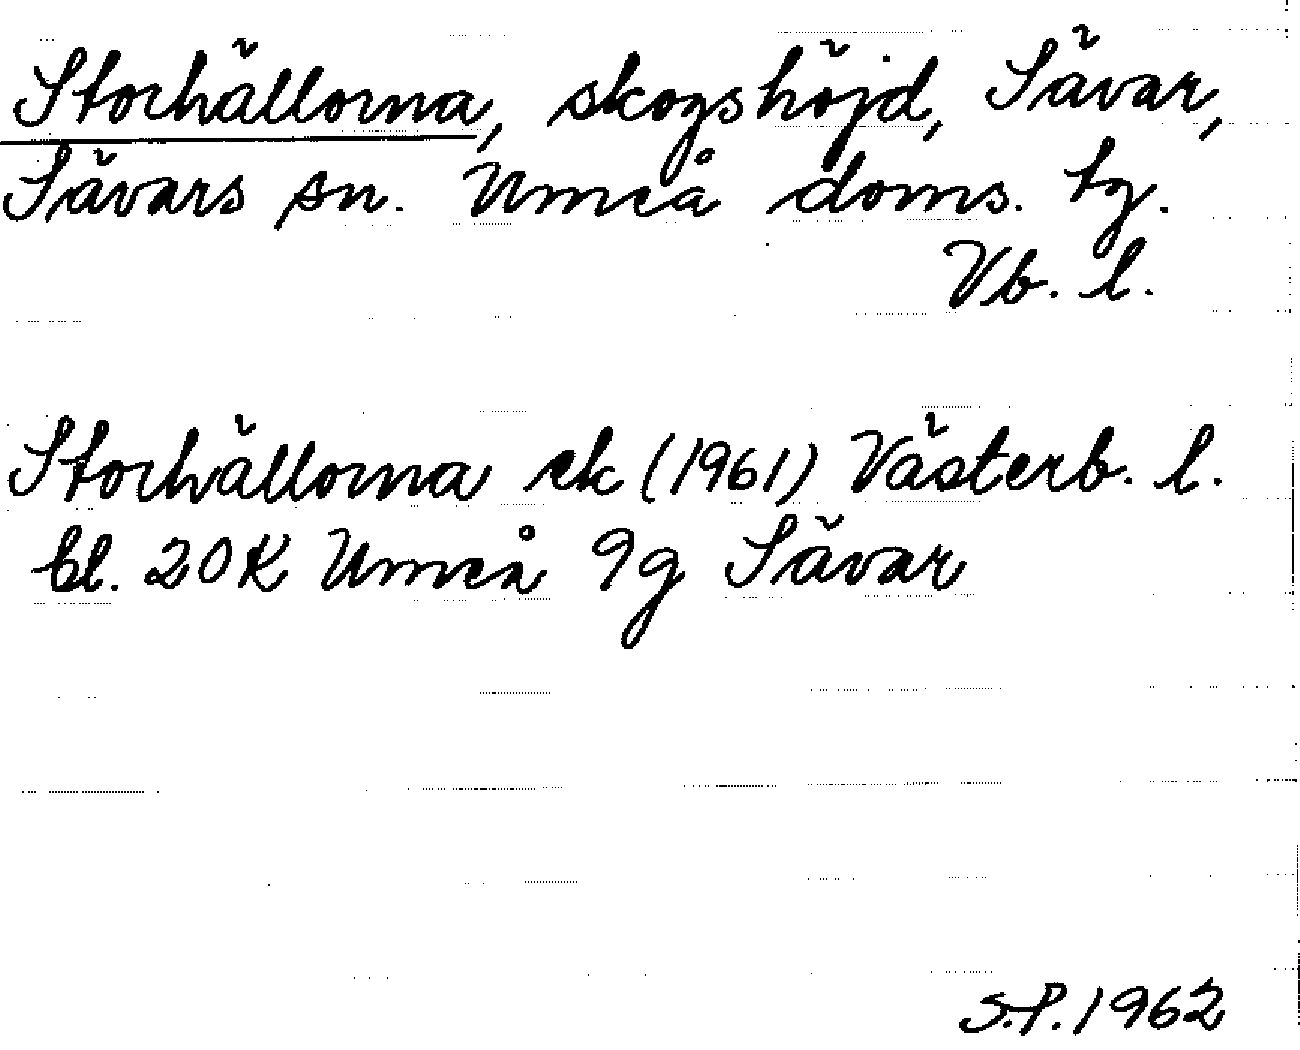 Storhällorna, skogshöjd, Sävar,
Sävars sn. Umeå doms. tg.
Vb. l.
Storhällorna ek (1961) Västerb. l.
bl. 20K Umeå 9g Sävar
S.P. 1962